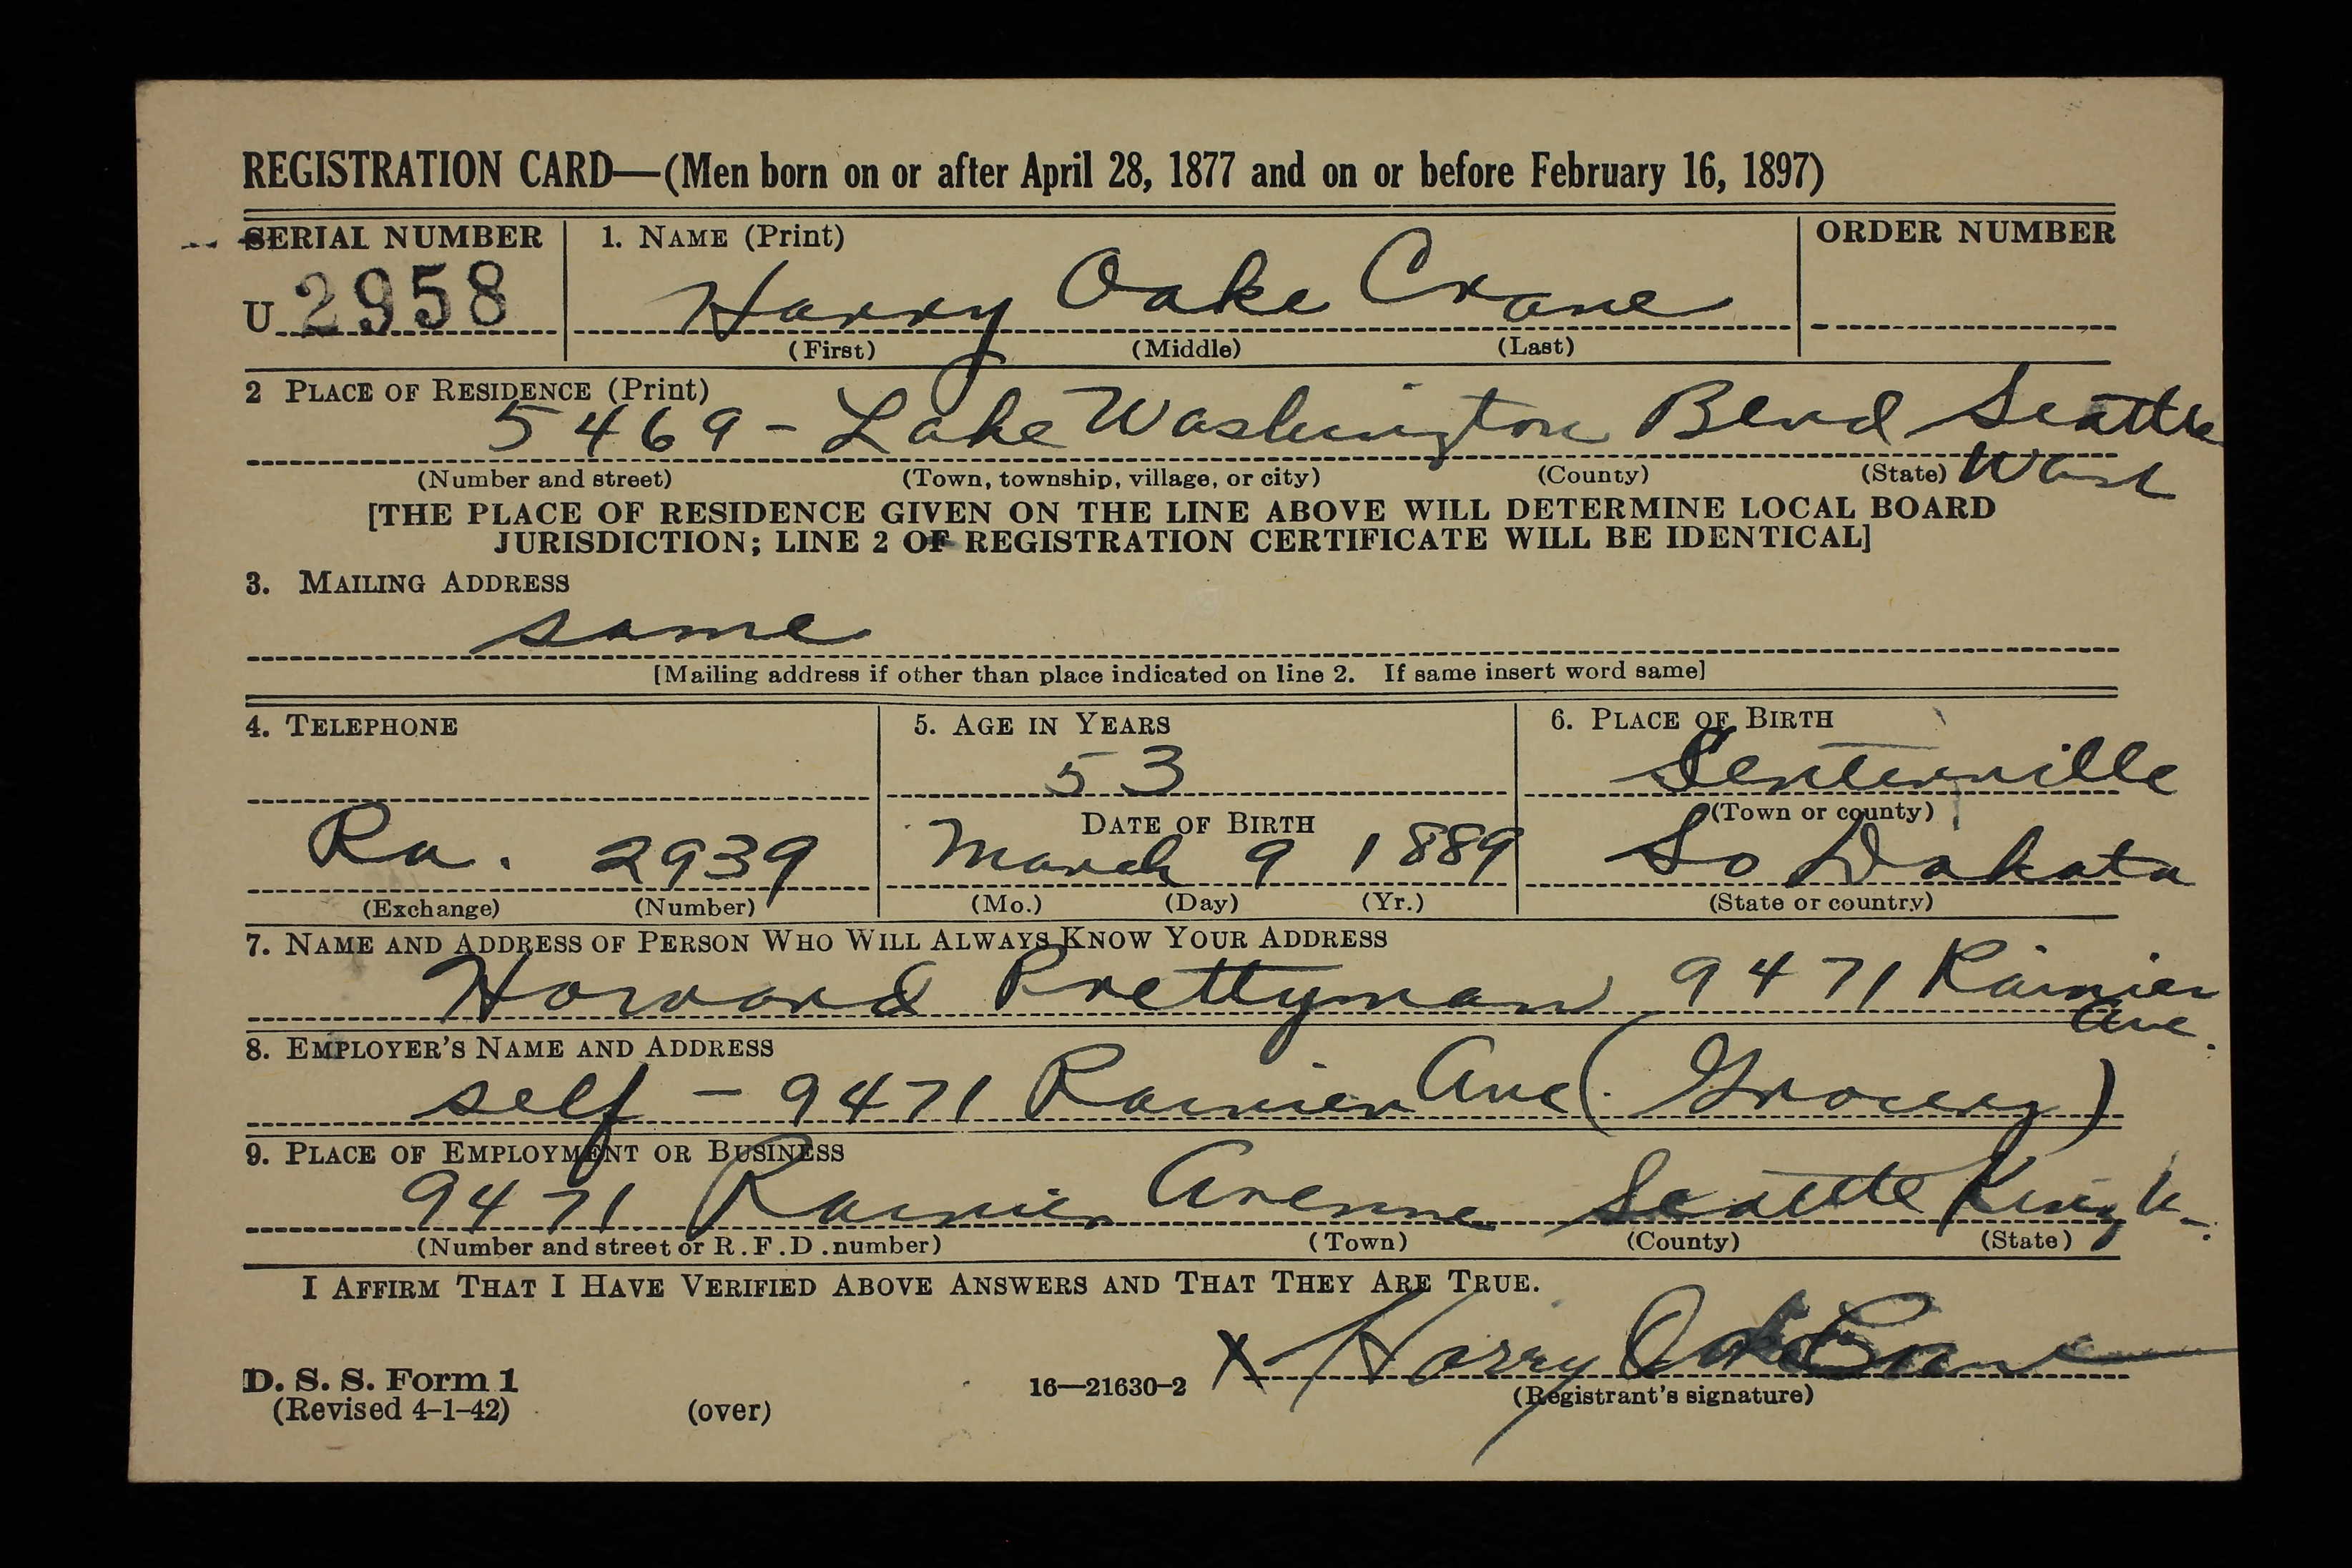 REGISTRATION CARD—(Men born on or after April 28, 1877 and on or before February 16, 1897)
SERIAL NUMBER
1. NAME (Print)
ORDER NUMBER
U 2958
Harry Oake Crane
(First) (Middle) (Last)
2 PLACE OF RESIDENCE (Print)
5469 - Lake Washington Blvd Seattle
(Number and street) (Town, township, village, or city) (County) (State) Wash
[THE PLACE OF RESIDENCE GIVEN ON THE LINE ABOVE WILL DETERMINE LOCAL BOARD
JURISDICTION; LINE 2 OF REGISTRATION CERTIFICATE WILL BE IDENTICAL]
3. MAILING ADDRESS
same
[Mailing address if other than place indicated on line 2. If same insert word same]
4. TELEPHONE
5. AGE IN YEARS
6. PLACE OF BIRTH
53
Centerville
(Town or county)
DATE OF BIRTH
Ra. 2939
March 9 1889
So Dakota
(Exchange) (Number)
(Mo.) (Day) (Yr.)
(State or country)
7. NAME AND ADDRESS OF PERSON WHO WILL ALWAYS KNOW YOUR ADDRESS
Howard Prettyman 9471 Rainier
Ave.
8. EMPLOYER'S NAME AND ADDRESS
self - 9471 Rainier Ave. (Grocery)
9. PLACE OF EMPLOYMENT OR BUSINESS
9471 Rainier Avenue Seattle King
(Number and street or R.F.D. number) (Town) (County) (State)
I AFFIRM THAT I HAVE VERIFIED ABOVE ANSWERS AND THAT THEY ARE TRUE.
X Harry Oake Crane
D. S. S. Form 1
(Revised 4-1-42)
(over)
16—21630-2
(Registrant's signature)